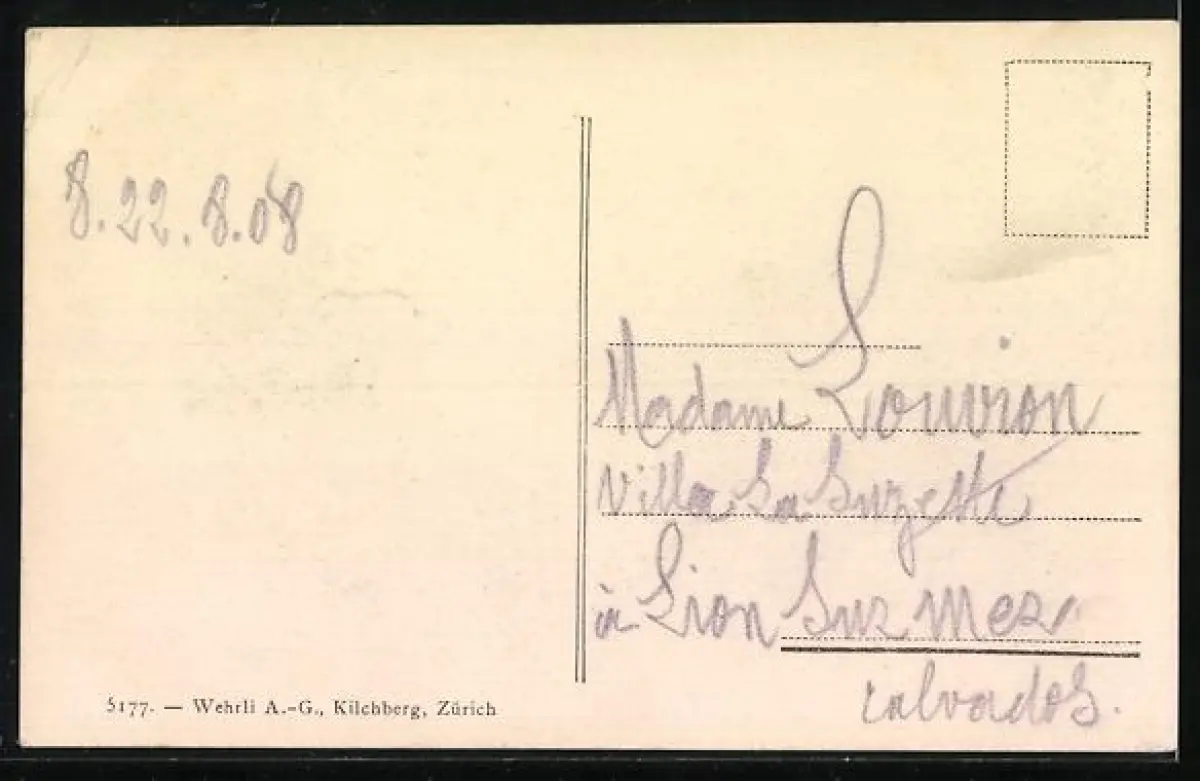 8. 22. 8. 08
Madame Louvion
Villa La Suzette
à Lion Sur Mer
Calvados.
5177. — Wehrli A.-G., Kilchberg, Zürich